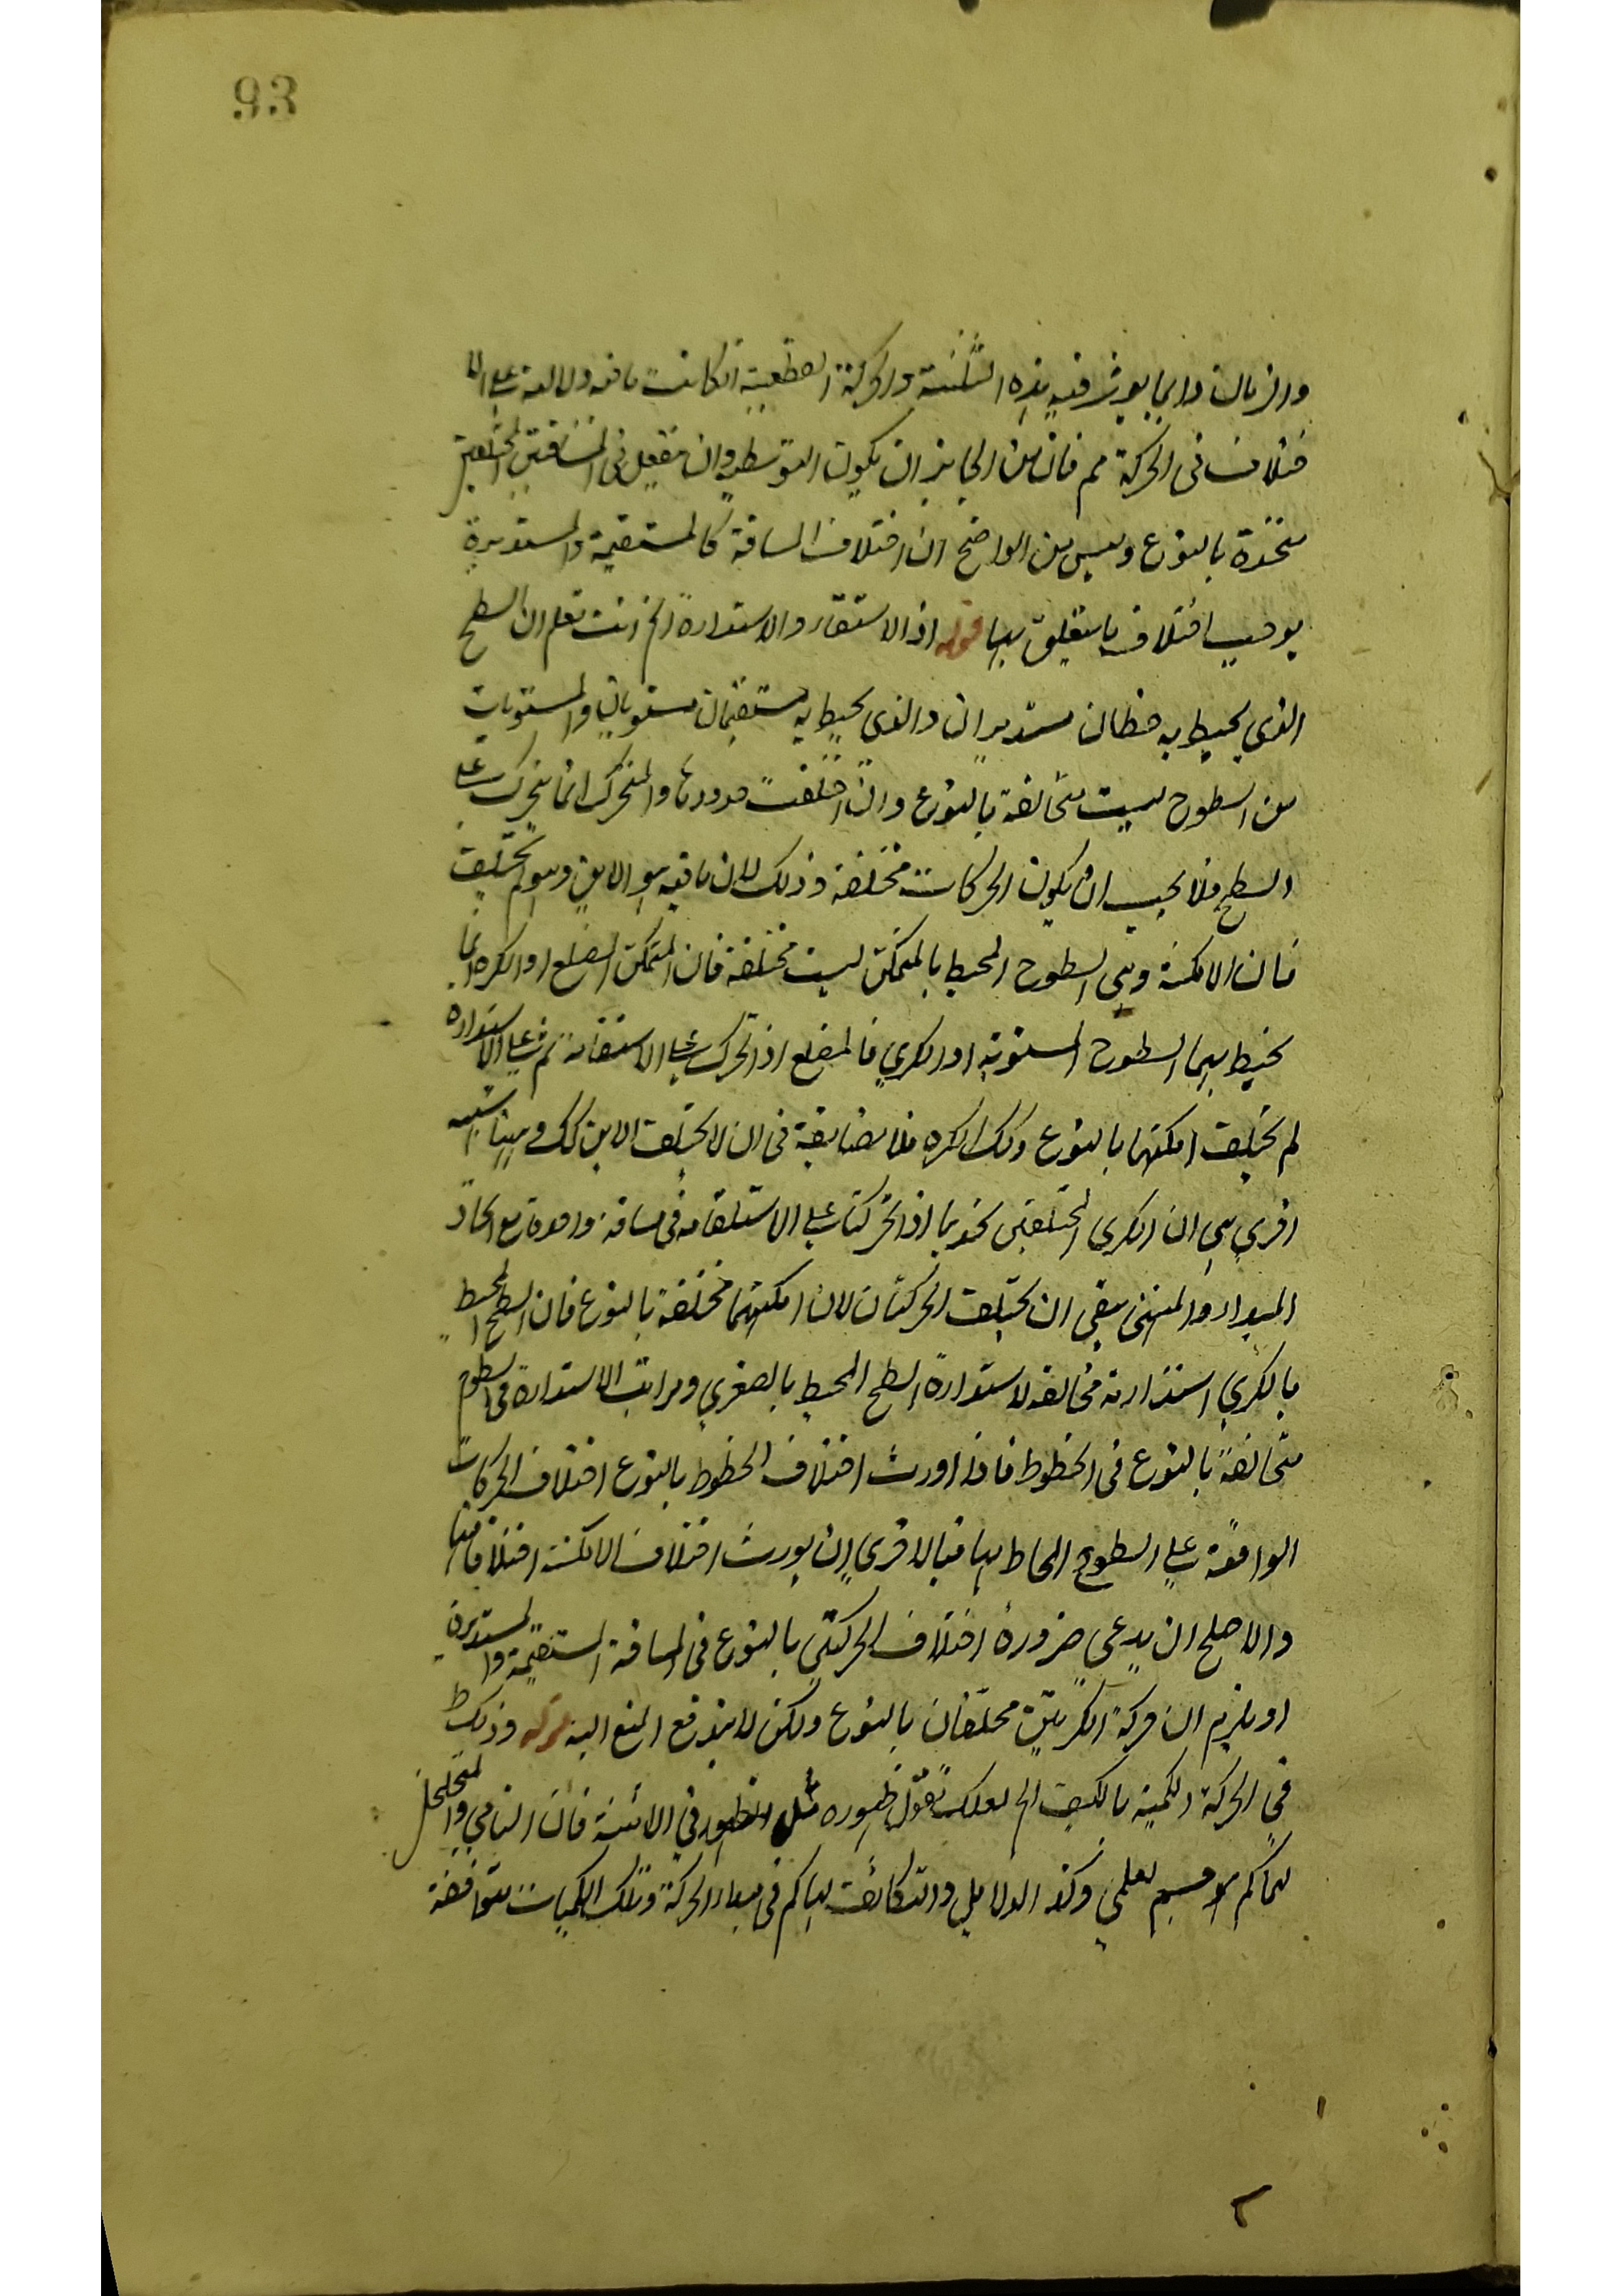 93
والزمان وانما يورث فيه هذه الثلثة والحركة القطعية انكانت مافيه دلالة على الا
ختلاف فى الحركة مم فان من الجايز ان يكون التوسط وان في المسافتين المختلفتين
متحدة بالنوع وليس من الواضح ان اختلاف المسافة كالمستقيمة والمستديرة
يوجب اختلاف ما يتعلق بها قوله اذ الاستقار والاستدارة الخ انت تعلم ان السطح
الذي يحيط به خطان مستديران والذي يحيط به مستقيمان مستويان والمستويات
من السطوح ليست متخالفة بالنوع وان اختلفت حدودها والمتحرك انما يتحرك على
السطح فلا يجب ان يكون الحركات مختلفة وذلك لان مافيه هو الاين وهو لم يختلف
فان الامكنة وهى السطوح المحيط بالمتمكن ليست مختلفة فان المتمكن المضلع او الكره انما
يحيط بهما السطوح المستوية او الكري فالمضلع اذا تحرك على الاستقامة ثم على الاستداره
لم يختلف امكنتها بالنوع وكك الكره فلا مضايقة فى ان لا يختلف الاين كك وهيهنا شبهه
اخري هى ان الكرى المختلفتين اذا تحركتا على الاستقامه فى مسافة واحدة مع اتحاد
المبداء والمنتهى بقى ان يختلف الحركتان لان امكنتهما مختلفة بالنوع فان السطح المحيط
بالكري استدارته مخالفه لاستدارة السطح المحيط بالصغري ومراتب الاستدارة فى السطوح
متخالفة بالنوع فى الخطوط فاذا اورث اختلاف الخطوط بالنوع اختلاف الحركات
الواقعة على السطوح المحاط بها فبالاخري ان يورث اختلاف الامكنة اختلافا فيها
والاصلح ان يدعى ضرورة اختلاف الحركتين بالنوع فى المسافة المستقيمة والمستديرة
او يلزم ان حركة الكرتين مختلفان بالنوع ولكن لا يندفع المنع البته قوله وذلك ظ
فى الحركة الكمية بالكيف الخ لعلك تقول ظهوره مثل الظهور فى الاينية فان النامي والمتخلخل
لهما كم هو جسم تعلمي وكذا الذلايل والتكاثف لها كم فى مبداء الحركة وتلك الكميات متوافقة